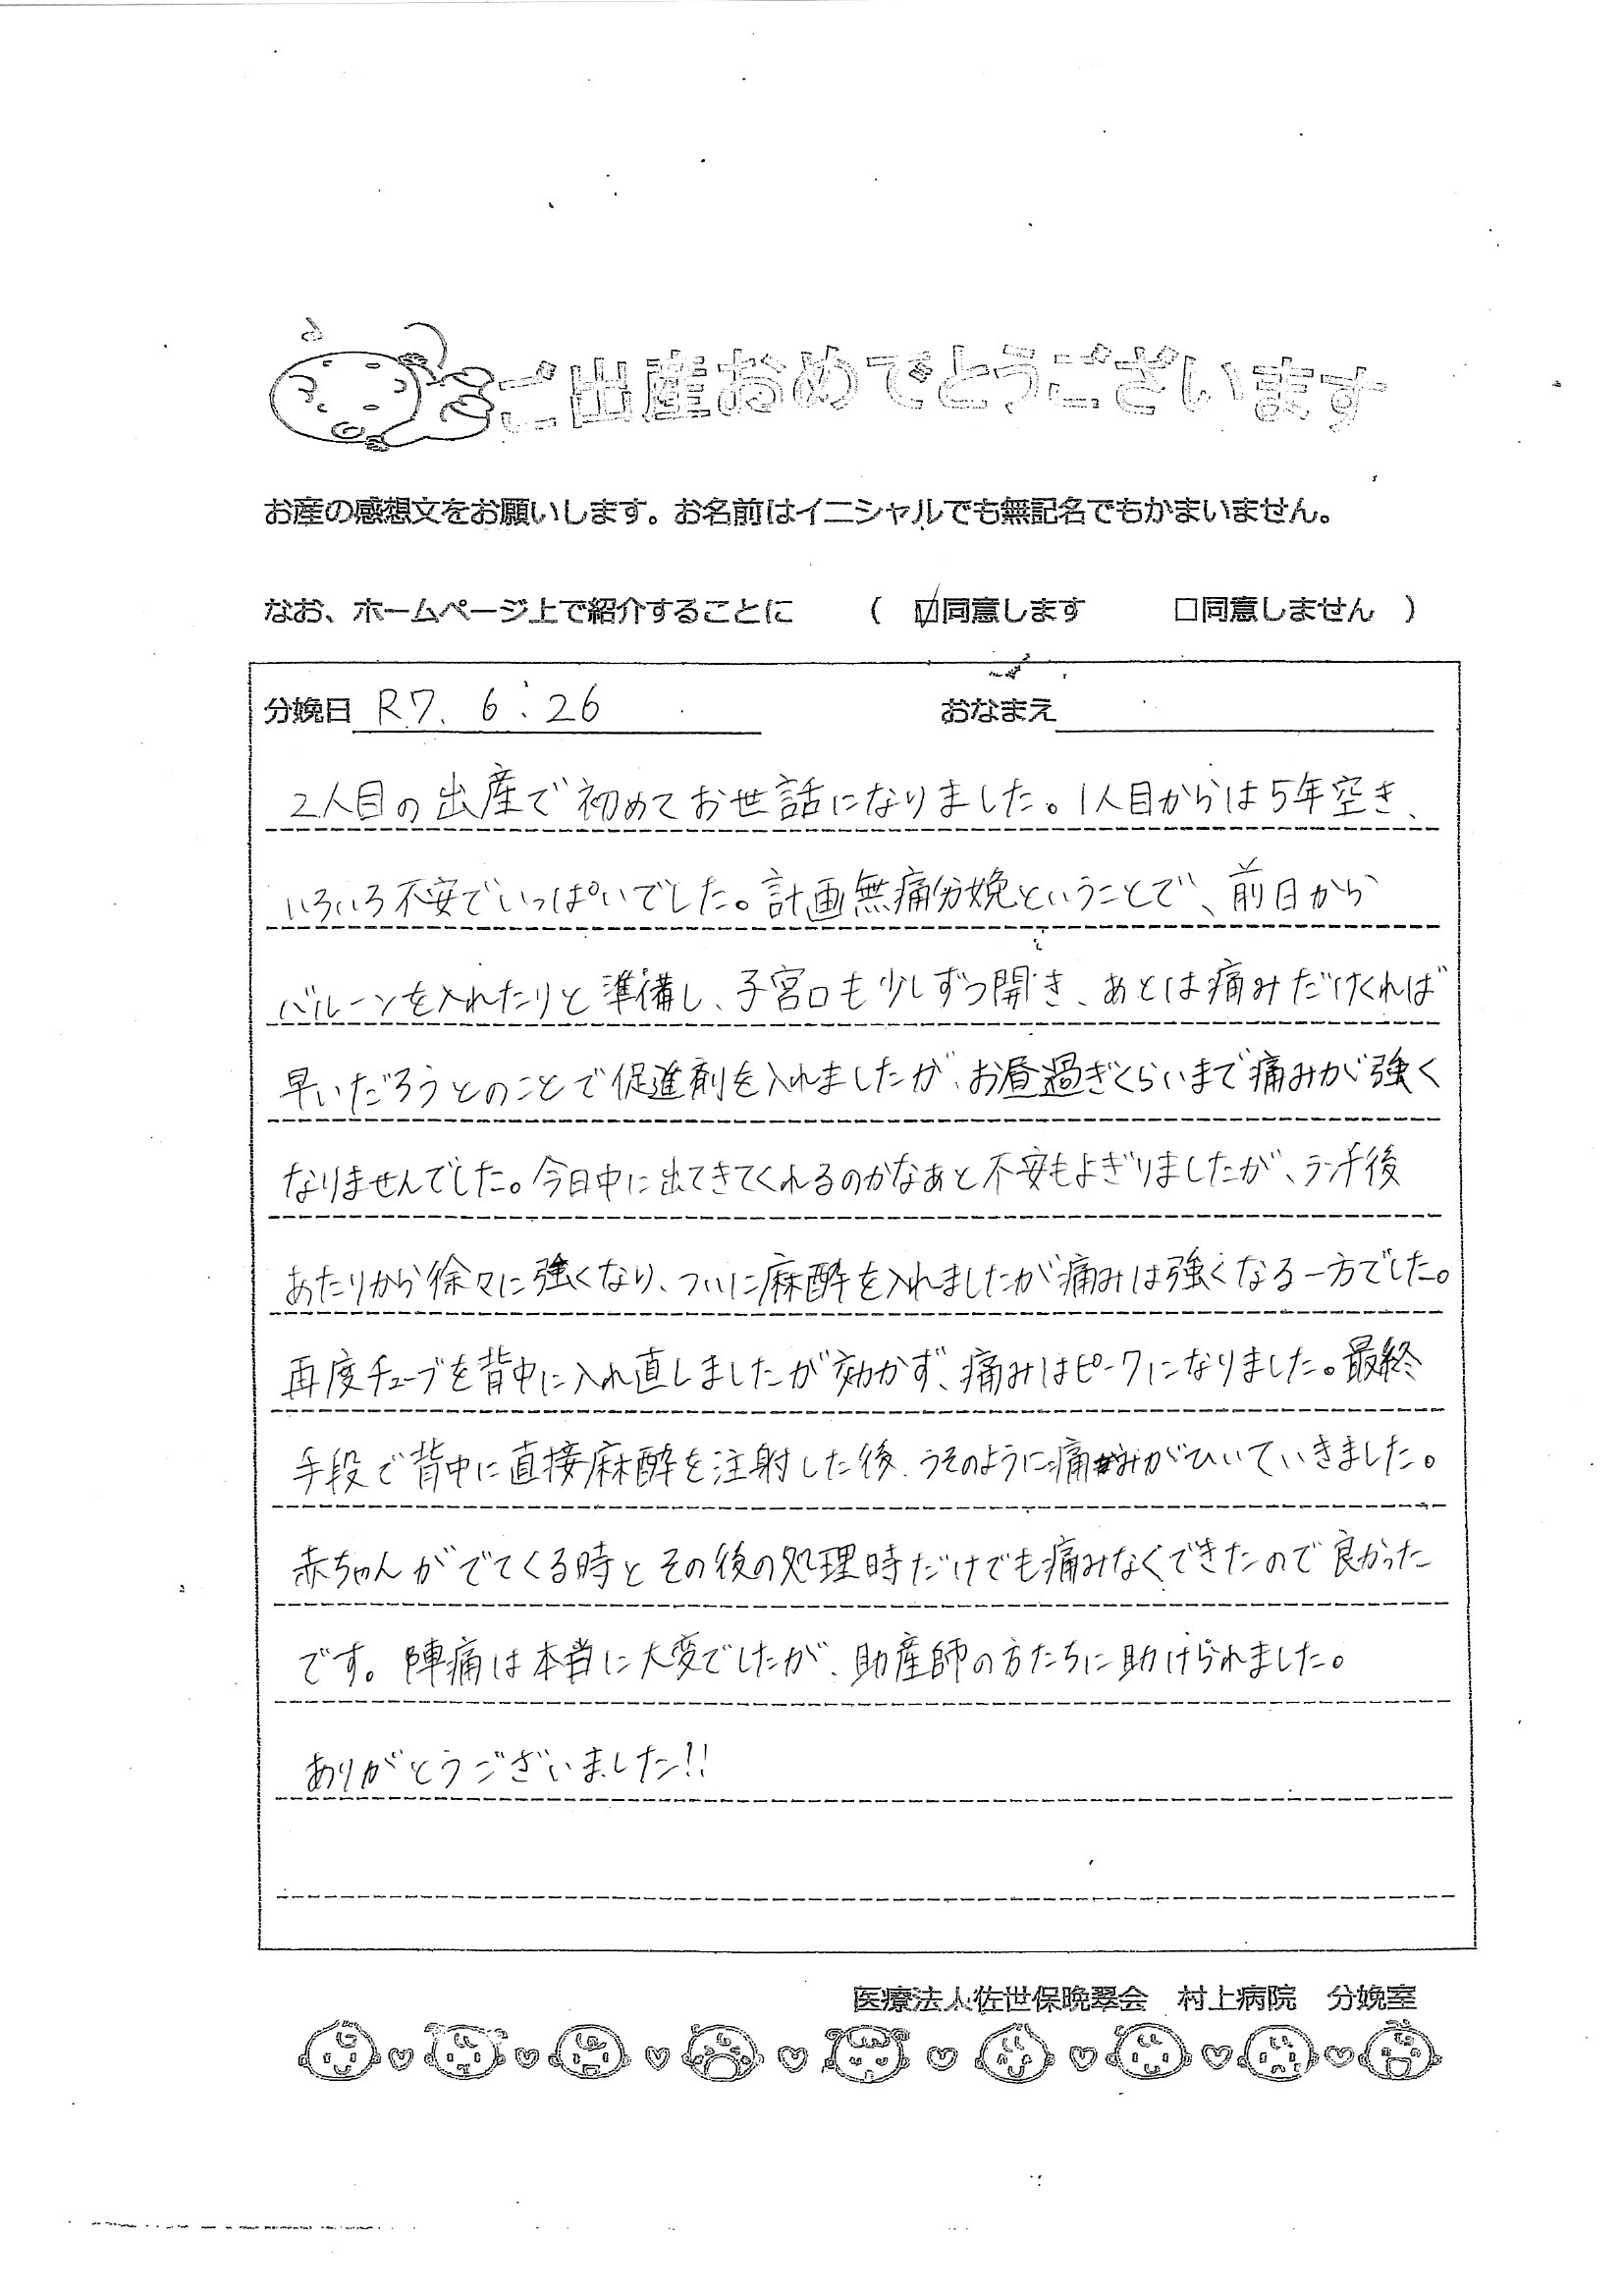 ご出産おめでとうございます
お産の感想文をお願いします。お名前はイニシャルでも無記名でもかまいません。
なお、ホームページ上で紹介することに ( ☑同意します □同意しません )
分娩日 R7. 6. 26 おなまえ
2人目の出産で初めてお世話になりました。1人目からは5年空き、
いろいろ不安でいっぱいでした。計画無痛分娩ということで、前日から
バルーンを入れたりと準備し、子宮口も少しずつ開き、あとは痛みだけくれば
早いだろうとのことで促進剤を入れましたが、お昼過ぎくらいまで痛みが強く
なりませんでした。今日中に出てきてくれるのかなあと不安もよぎりましたが、ランチ後
あたりから徐々に強くなり、ついに麻酔を入れましたが痛みは強くなる一方でした。
再度チューブを背中に入れ直しましたが効かず、痛みはピークになりました。最終
手段で背中に直接麻酔を注射した後、うそのように痛みがひいていきました。
赤ちゃんがでてくる時とその後の処理時だけでも痛みなくできたので良かった
です。陣痛は本当に大変でしたが、助産師の方たちに助けられました。
ありがとうございました!!
医療法人佐世保晩翠会 村上病院 分娩室